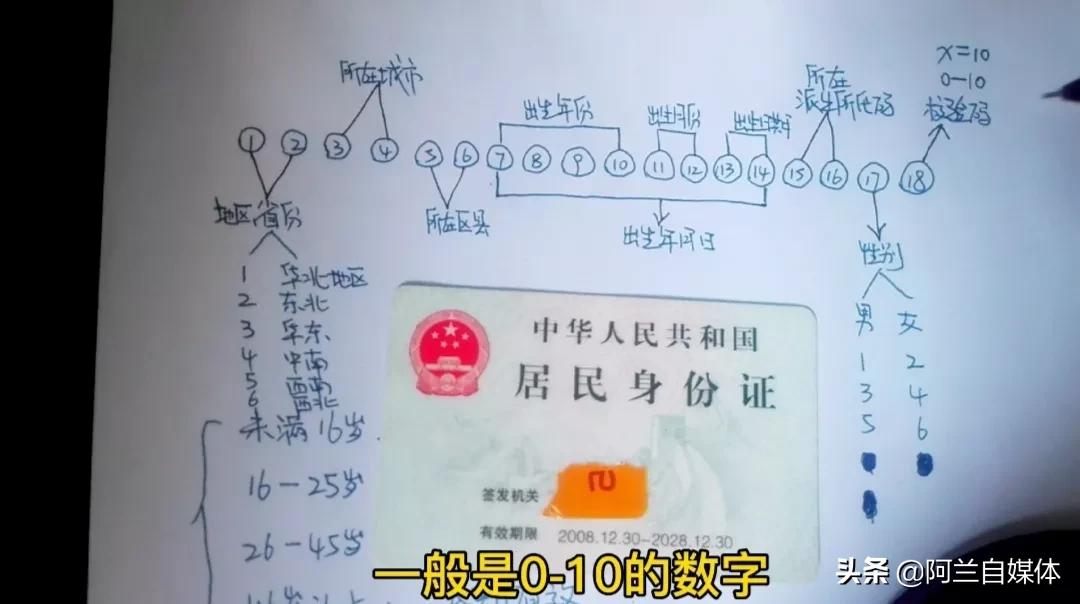 X=10
0-10
校验码
所在城市
所在
派出所代码
出生年份
出生月份
① ② ③ ④ ⑤ ⑥ ⑦ ⑧ ⑨ ⑩ ⑪ ⑫ ⑬ ⑭ ⑮ ⑯ ⑰ ⑱
地区省份
所在区县
出生年月日
性别
1 华北地区
2 东北
3 华东
4 中南
5 西南
6 西北
男 女
1 2
3 4
5 6
未满16岁
16-25岁
26-45岁
中华人民共和国
居民身份证
签发机关
有效期限 2008.12.30-2028.12.30
一般是0-10的数字
头条 @阿兰自媒体